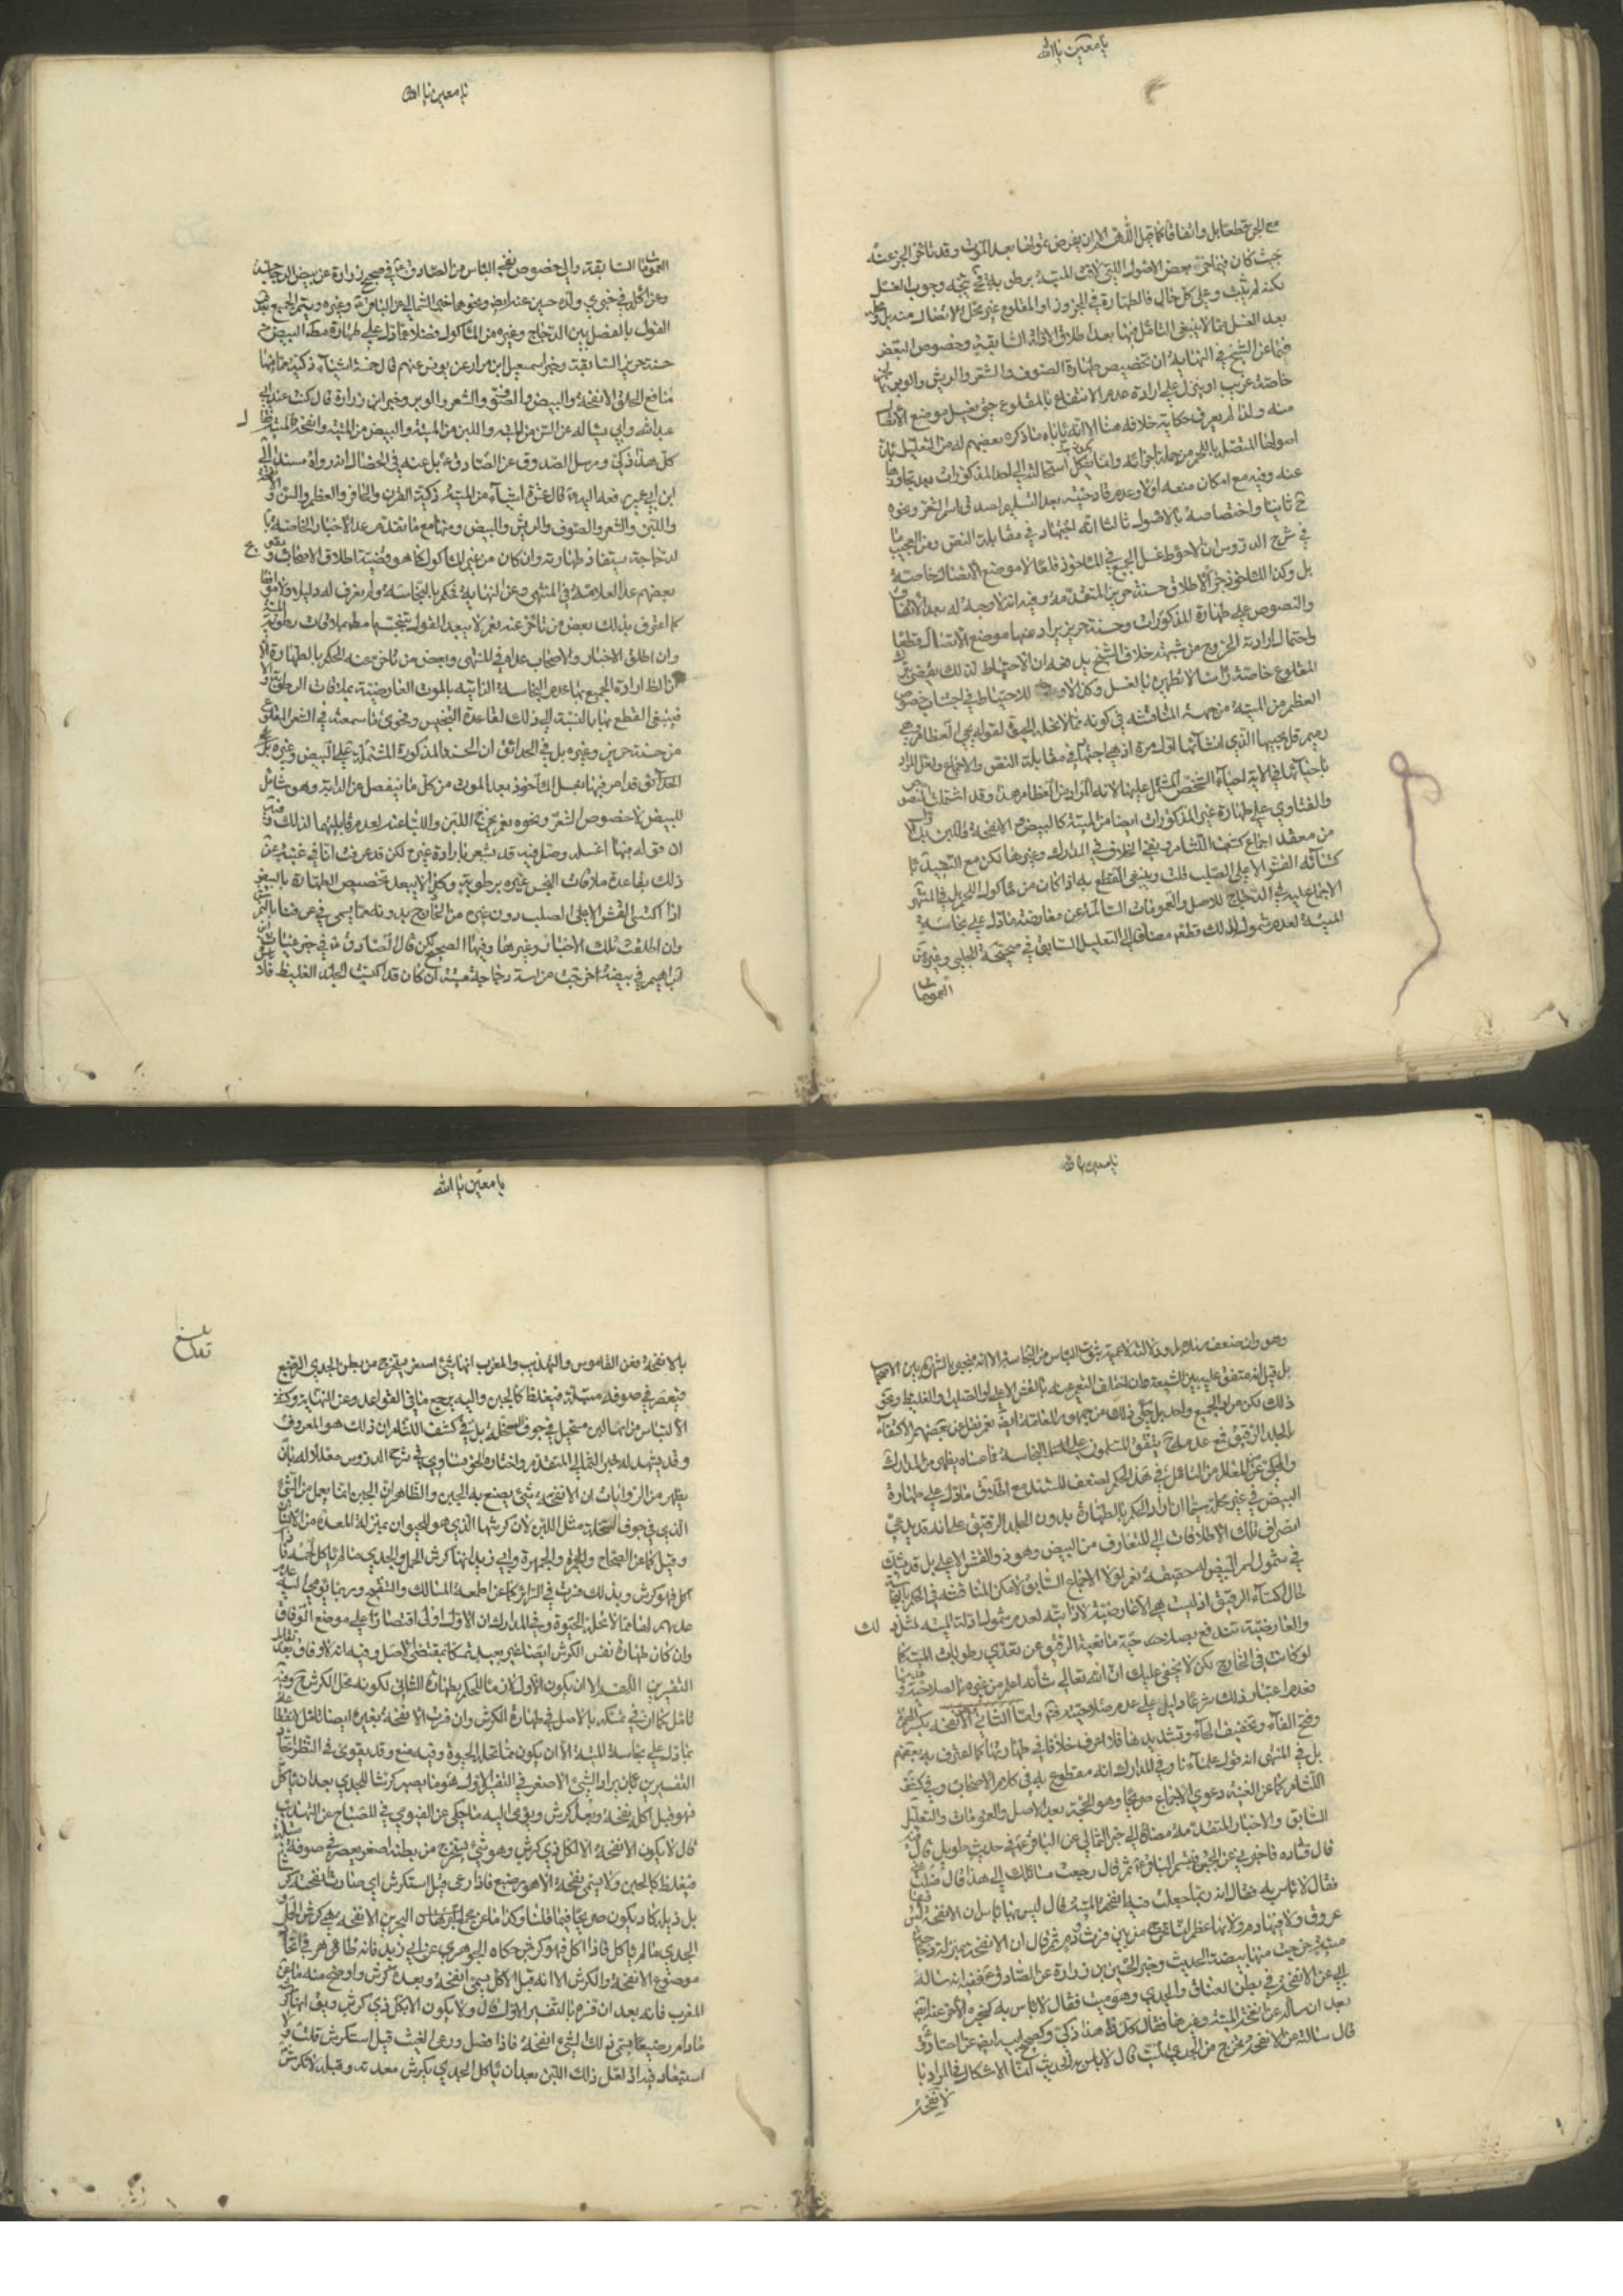 يا معين يا الله
مع الجز قطعا بل واتفاقا كما قيل اللهم الا ان يفرض نموها بعد الموت وقد تاخر الجز عنه
بحيث كان فيما جز بعض الاصول التي لاقت الميتة برطوبة
لكنه لم يثبت وعلى كل حال فالطهارة في المجزوز او المقلوع غير محل الاتصال منه بل
بعد الغسل مما لا ينبغي التامل فيها بعد اطلاق الادلة السابقة وخصوص البعض
فما عن الشيخ في النهاية ان تخصيص طهارة الصوف والشعر والريش والوبر
خاصة غريب او ينزل على ارادة عدم الانتفاع بالمقلوع حتى يغسل موضع الاتصال
منه ولذا لم يعرف حكاية خلافه هنا الا انه ياباه ما ذكره بعضهم له من التعليل بان
اصولها المتصل باللحم من جملة اجزائه وانما يستكمل استحالتها الى احد المذكورات بعد تجاوزها
عنه وفيه مع امكان منعه اولا وعدم قادحيته بعد التسليم لصدق اسم الشعر ونحوه
ح ثانيا واختصاصه بالاصول ثالثا انه اجتهاد في مقابلة النص ومن العجيب ما
في شرح الدروس ان الاحوط غسل الجميع في الماخوذ قلعا لا موضع الاتصال خاصة
بل وكذا الماخوذ جزا لاطلاق حسنة حريز المتقدمة وفيه انه لا وجه له بعد الاتفاق
والنصوص على طهارة المذكورات وحسنة حريز يراد منها موضع الاتصال قطعا
واحتمال ارادته الخروج من شبهة خلاف الشيخ يدفعه ان الاحتياط لذلك يقضي
المقلوع خاصة راسا لا تطهيره بالغسل وكذا لا وجه للاحتياط في اجتناب خصوص
العظم من الميتة من جهة المناقشة في كونه مما لا تحله الحيوة لقوله يحيي العظام وهي
رميم قل يحييها الذي انشاها اول مرة اذ هي اجتهاد في مقابلة النص والاجماع ولعل المراد
باحيائها في الاية احياء الشخص المشتمل عليها لا انه المراد من العظام هذا وقد اشتملت النصوص
والفتاوى على طهارة غير المذكورات ايضا من الميتة كالبيض والانفحة واللبن
من معقد اجماع كشف اللثام ونفي الخلاف في المدارك وغيرها لكن مع التقييد
كتسائه القشر الاعلى الصلب قلت وينبغي القطع به اذا كان من ماكول اللحم بل في المنتهى
الاجماع عليه في الدجاج للاصل والعمومات السالمة عن معارضة ما دل على نجاسة
الميتة لعدم شموله لذلك قطعا مضافا الى التعليل السابق في صحيحة الحلبي وغيره من
العمومات
يا معين يا الله
العمومات السابقة والى خصوص نفي الباس من الصادق ع في صحيح زرارة عن بيض الدجاجة
وعن اكل في خبري ولده حسين عنه ايض ونحوها خبر الثمالي عن الباقر ع وغيره ويتم الجميع بعد
القول بالفصل بين الدجاج وغيره من الماكول فضلا عما دل على طهارة مطلق البيض
حسنة حريز السابقة وخبر اسمعيل ابن مرار عن يونس عنهم قال خمسة اشياء ذكية مما فيها
منافع الخلق الانفحة والبيض والصوف والشعر والوبر وخبر ابن زرارة قال كنت عند ابي
عبد الله وابي يساله عن السن من الميتة واللبن من الميتة والبيض من الميتة وانفحة الميتة
كل هذا ذكي ومرسل الصدوق عن الصادق ع بل عنه في الخصال انه رواه مسندا الى
ابن ابي عمير رفعه اليه قال عشرة اشياء من الميتة ذكية القرن والحافر والعظم والسن و
واللبن والشعر والصوف والريش والبيض ومنها مع ما تقدم عدا الاخبار الخاصة
لدجاجة يستفاد طهارته وان كان من غير الماكول كما هو قضية اطلاق الاصحاب
بعضهم عدا العلامة في المنتهى وعن النهاية فحكم بالنجاسة ولم نعرف له دليلا
كما اعترف بذلك بعض من تاخر عنه نعم لا يبعد القول بتنجسها مطلقا بملاقات رطوبة
وان اطلق الاخبار والاصحاب عداه في المنتهى وبعض من تاخر عنه الحكم بالطهارة
اذ الظ ارادة الجميع بها عدم النجاسة الذاتية بالموت لا العارضية بملاقات الرطوبة
فينبغي القطع بها بالنسبة الى ذلك لقاعدة التنجيس وفحوى ما سمعته في الشعر المقلوع
من حسنة حريز وغيره بل في الحدائق ان الحسنة المذكورة المشتملة على البيض وغيره
الحدائق قد امر فيها بغسل الماخوذ بعد الموت من كل ما ينفصل من الدابة وهو شامل
للبيض لا خصوص الشعر ونحوه نعم يخرج اللبن واللباء عنه لعدم قابليتهما لذلك
ان قوله فيها اغسله وصل فيه قد يشعر بارادة غيره لكن قد عرفت انا في غنية عن
ذلك بقاعدة ملاقات النجس غيره برطوبة وكذا لا يبعد تخصيص الطهارة بالبيض
اذا اكتسى القشر الاعلى الصلب دون غيره من الخارج بدونه مما يسمى في عرفنا
وان اطلقت تلك الاخبار وغيرها وفيها الصحيح لكن قال الصادق ع في خبر غياث
ابراهيم في بيضة اخرجت من است دجاجة ميتة ان كان قد اكتست الجلد الغليظ فلا
يا معين يا الله
وهو وان ضعف سنده بل ودلالته لاعمية ثبوت الباس من النجاسة الا انه منجبر بالشهرة بين الاصحاب
بل قيل انه متفق عليه بين الشيعة وان اختلف التعبير عنه بالقشر الاعلى او الصلب او الغليظ ونحو
ذلك لكن مراد الجميع واحد بل حكي ذلك عن جمهور العامة ايضا نعم نقل عن بعضهم الاكتفاء
بالجلد الرقيق
والمحكي عن المعالم من التامل في هذا الحكم لضعف المستند مع اطلاق ما دل على طهارة
البيض في غير محله سيما ان اراد الحكم بالطهارة بدون الجلد الرقيق على انه قد يدعى
انصراف تلك الاطلاقات الى المتعارف من البيض وهو ذو القشر الاعلى بل قد يشك
في شمول اسم البيض له حقيقة نعم لولا الاجماع السابق لامكن المناقشة في الحكم بالنجاسة
حال اكتساء الرقيق اذ ليست هي الا عارضية لا ذاتية لعدم شمول ادلة الميتة لمثله
والعارضية تندفع بصلاحية مانعية الرقيق عن تعدي رطوبات الميتة كما
لو كانت في الخارج لكن لا يخفى عليك ان الله تعالى شانه اعلم من غيره بالصلاحية
فعدم اعتبار ذلك شرعا دليل على عدم صلاحيته واما الثاني اي الانفحة بكسر الهمزة
وفتح الفاء وتخفيف الحاء وتشديدها فلا اعرف خلافا في طهارتها كما اعترف به بعضهم
بل في المنتهى انه قول علمائنا وفي المدارك انه مقطوع به في كلام الاصحاب وفي كشف
اللثام كما عن الغنية دعوى الاجماع صريحا وهو الحجة بعد الاصل والعمومات والتعليل
السابق والاخبار المتقدمة مضافا الى خبر الثمالي عن الباقر ع في حديث طويل قال
قال قتادة فاخبرني عن الجبن فتبسم الباقر ع ثم قال رجعت مسائلك الى هذا قال ضلت
فقال لا باس به فقال انه ربما جعلت فيه انفحة الميتة قال ليس بها باس ان الانفحة ليس
عروق ولا فيها دم ولا لها عظم انما تخرج من بين فرث ودم ثم قال ان الانفحة بمنزلة دجاجة
ميتة خرجت منها بيضة الحديث وخبر الحسين بن زرارة عن الصادق ع ففيه انه ساله
ابي عن الانفحة في بطن العناق والجدي وهو ميت فقال لا باس به كخبره الاخر عنه ايض
بعد ان ساله عن انفحة الميتة وغيرها فقال كل هذا ذكي
قال سالته عن الانفحة تخرج من الجدي الميت قال لا باس به الحديث انما الاشكال في المراد با
لانفحة
يا معين يا الله
بلغ
بالانفحة فعن القاموس والتهذيب والمغرب انها شئ اصفر يستخرج من بطن الجدي الرضيع
فيعصر في صوفه مبتلة فيغلظ كالجبن واليه يرجع ما في القواعد وعن النهاية وكشف
الالتباس من انها لبن مستحيل في جوف السخلة بل في كشف اللثام ان ذلك هو المعروف
وقد يشهد له خبر الثمالي المتقدم واختاره الخونساري في شرح الدروس معللا له بان
يظهر من الروايات ان الانفحة شئ يصنع به الجبن والظاهر ان الجبن انما يعمل من الشئ
الذي في جوف السخلة مثل اللبن لان كرشها الذي هو للحيوان بمنزلة المعدة من الانسان
وقيل كما عن الصحاح والجمهرة وابي زيد انها كرش الحمل والجدي ما لم ياكل
اكل فهو كرش وبذلك فسرت في السرائر كما عن اطعمة المسالك والتنقيح وربما يومي اليه
عدهم لها مما لا تحله الحيوة وفي المدارك ان الاول اولى اقتصارا على موضع الوفاق
وان كان طهارة نفس الكرش ايضا غير بعيد تمسكا بمقتضى الاصل وفيه انه لا وفاق بعد
التفسيرين اللهم الا ان يكون الاول لازما للحكم بطهارة الثاني لكونه محل الكرش ح وفيه
تامل كما ان في تمسكه بالاصل في طهارة الكرش وان فسرت الانفحة بغيره ايضا تاملا
بما دل على نجاسة الميتة الا ان يكون مما تحله الحيوة وفيه منع وقد يقوى في النظر اتحاد
التفسيرين بان يراد الشئ الاصفر في التفسير الاول هو ما يصير كرشا للجدي بعد ان ياكل
فهو قبل اكله انفحة وبعده كرش ويومي اليه ما حكي عن الفيومي في المصباح عن التهذيب
قال لا يكون الانفحة الا لكل ذي كرش وهو شئ يستخرج من بطنه اصفر يعصر في صوفة مبتلة
فيغلظ كالجبن ولا يسمى انفحة الا وهو رضيع فاذا رعى قيل استكرش اي صارت انفحته كرشا
بل ذيله كاد يكون صريحا فيما قلنا وكذا ما عن مجمع البحرين الانفحة هي كرش الحمل
الجدي ما لم ياكل فاذا اكل فهو كرش حكاه الجوهري عن ابي زيد فانه ظاهر في اتحاد
موضوع الانفحة والكرش الا انه قبل الاكل يسمى انفحة وبعده كرش واوضح منه ما عن
المغرب فانه بعد ان فسرها بالتفسير الاول قال ولا يكون الا لكل ذي كرش ويق انها كرشه
مادام رضيعا يسمى ذلك الشئ انفحة فاذا فصل ورعى العشب قيل استكرش قلت
استبعاد فيه اذ لعل ذلك اللبن بعد ان ياكل الجدي يكرش معدته وقبله لا تكرش